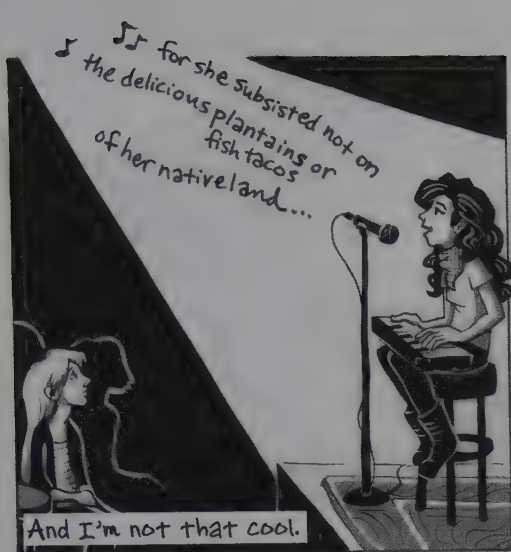 for she subsisted not on
the delicious plantains or
fish tacos
of her native land...
And I'm not that cool.